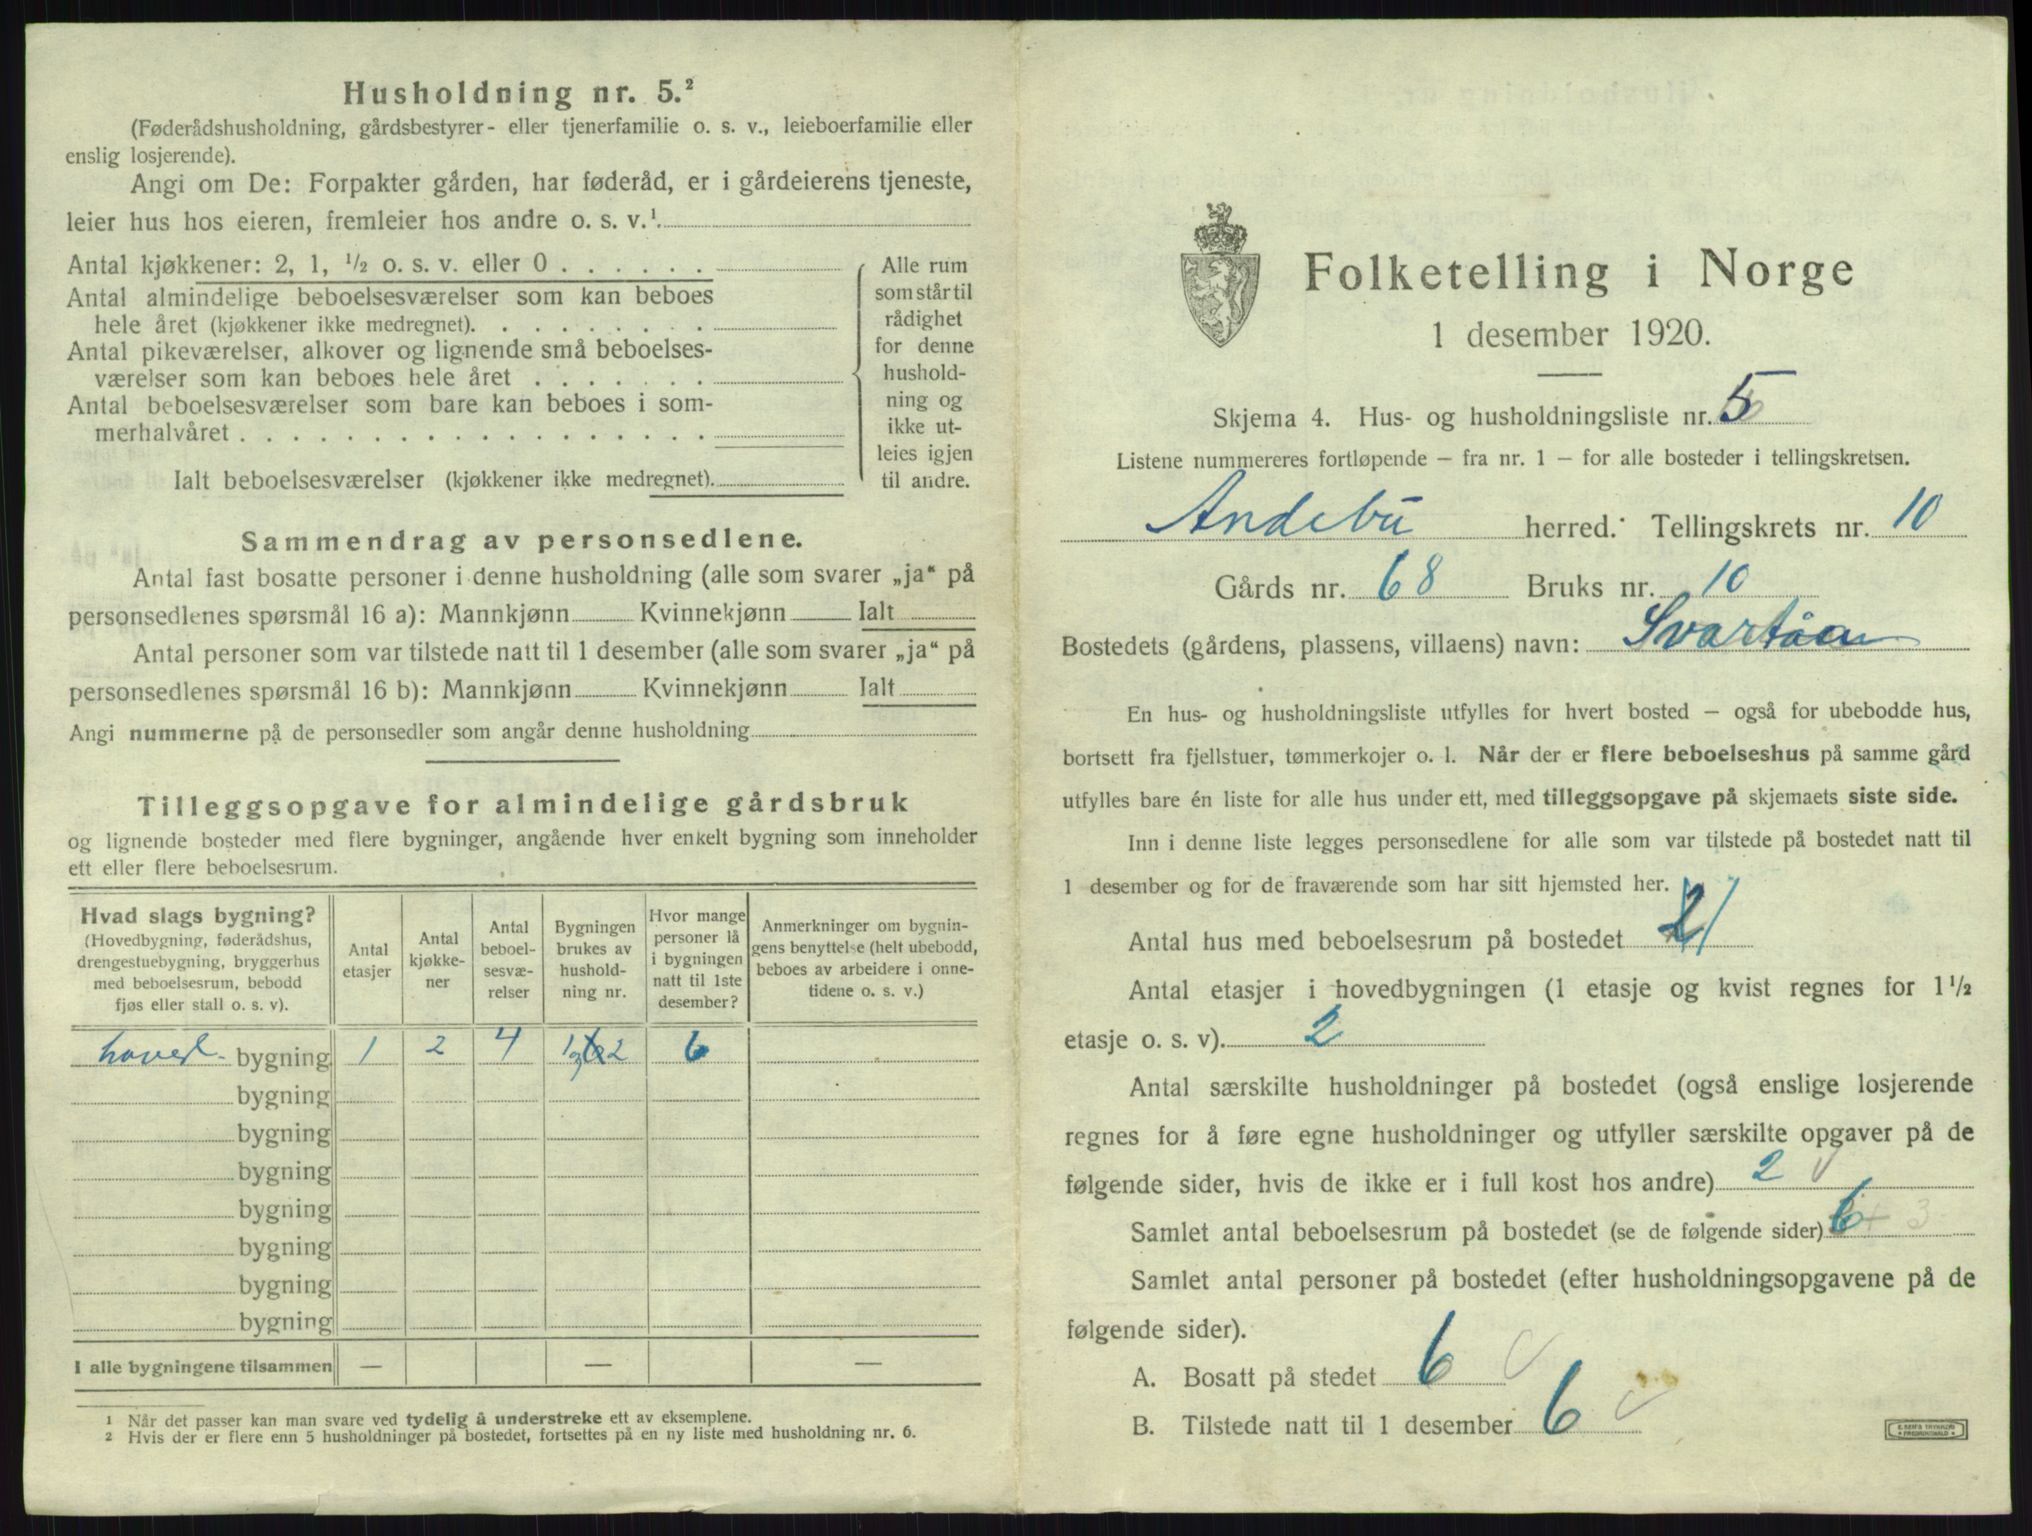 Husholdning nr. 5.²
(Føderådshusholdning, gårdsbestyrer- eller tjenerfamilie o. s. v., leieboerfamilie eller
enslig losjerende).
Angi om De: Forpakter gården, har føderåd, er i gårdeierens tjeneste,
leier hus hos eieren, fremleier hos andre o. s. v.¹.
Antal kjøkkener: 2, 1, ½ o. s. v. eller 0 . . . . . .
Antal almindelige beboelsesværelser som kan beboes
hele året (kjøkkener ikke medregnet). . . . . . . . .
Antal pikeværelser, alkover og lignende små beboelses-
værelser som kan beboes hele året . . . . . . .
Antal beboelsesværelser som bare kan beboes i som-
merhalvåret . . . . . . . . . . . . . . . . . .
Ialt beboelsesværelser (kjøkkener ikke medregnet).
Alle rum
som står til
rådighet
for denne
hushold-
ning og
ikke ut-
leies igjen
til andre.
Sammendrag av personsedlene.
Antal fast bosatte personer i denne husholdning (alle som svarer „ja“ på
personsedlenes spørsmål 16 a): Mannkjønn Kvinnekjønn Ialt
Antal personer som var tilstede natt til 1 desember (alle som svarer „ja“ på
personsedlenes spørsmål 16 b): Mannkjønn Kvinnekjønn Ialt
Angi nummerne på de personsedler som angår denne husholdning
Tilleggsopgave for almindelige gårdsbruk
og lignende bosteder med flere bygninger, angående hver enkelt bygning som inneholder
ett eller flere beboelsesrum.
Hvad slags bygning?
(Hovedbygning, føderådshus,
drengestuebygning, bryggerhus
med beboelsesrum, bebodd
fjøs eller stall o. s. v).
Antal
etasjer
Antal
kjøkke-
ner
Antal
beboel-
sesvæ-
relser
Bygningen
brukes av
hushold-
ning nr.
Hvor mange
personer lå
i bygningen
natt til 1ste
desember?
Anmerkninger om bygnin-
gens benyttelse (helt ubebodd,
beboes av arbeidere i onne-
tidene o. s. v.)
hoved- bygning 1 2 4 1 2 6
bygning
bygning
bygning
bygning
bygning
bygning
bygning
I alle bygningene tilsammen — — —
1 Når det passer kan man svare ved tydelig å understreke ett av eksemplene.
2 Hvis der er flere enn 5 husholdninger på bostedet, fortsettes på en ny liste med husholdning nr. 6.
Folketelling i Norge
1 desember 1920.
Skjema 4. Hus- og husholdningsliste nr. 5
Listene nummereres fortløpende – fra nr. 1 – for alle bosteder i tellingskretsen.
Andebu herred. Tellingskrets nr. 10
Gårds nr. 68 Bruks nr. 10
Bostedets (gårdens, plassens, villaens) navn: Svartåa
En hus- og husholdningsliste utfylles for hvert bosted – også for ubebodde hus,
bortsett fra fjellstuer, tømmerkojer o. l. Når der er flere beboelseshus på samme gård
utfylles bare én liste for alle hus under ett, med tilleggsopgave på skjemaets siste side.
Inn i denne liste legges personsedlene for alle som var tilstede på bostedet natt til
1 desember og for de fraværende som har sitt hjemsted her.
Antal hus med beboelsesrum på bostedet 2 1
Antal etasjer i hovedbygningen (1 etasje og kvist regnes for 1½
etasje o. s. v). 2
Antal særskilte husholdninger på bostedet (også enslige losjerende
regnes for å føre egne husholdninger og utfyller særskilte opgaver på de
følgende sider, hvis de ikke er i full kost hos andre) 2
Samlet antal beboelsesrum på bostedet (se de følgende sider) 6 3
Samlet antal personer på bostedet (efter husholdningsopgavene på de
følgende sider).
A. Bosatt på stedet 6
B. Tilstede natt til 1 desember 6